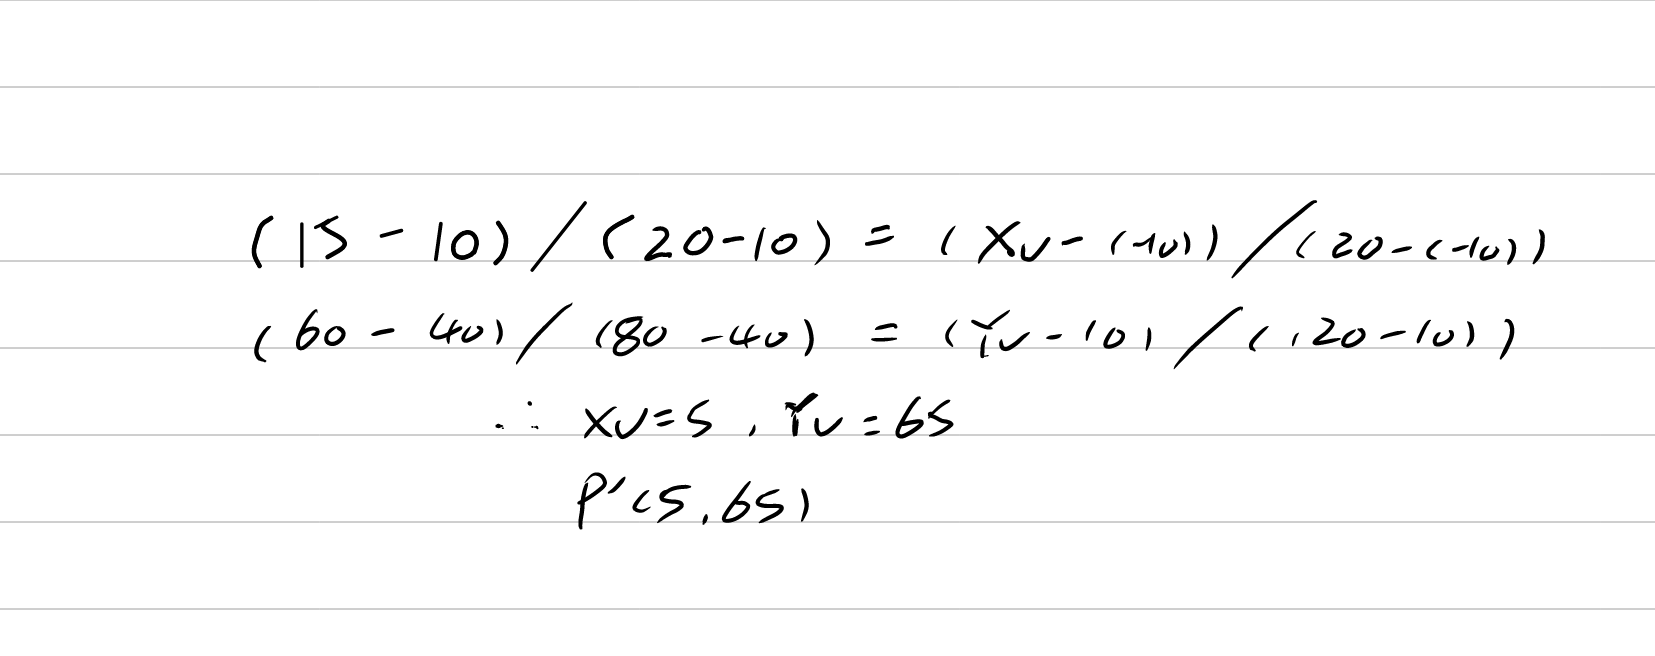 (15 - 10) / (20-10) = (Xv - (-10)) / (20-(-10))
(60 - 40) / (80 - 40) = (Yv - 10) / (120-10))
∴ xv=5, Yv=65
P'(5,65)